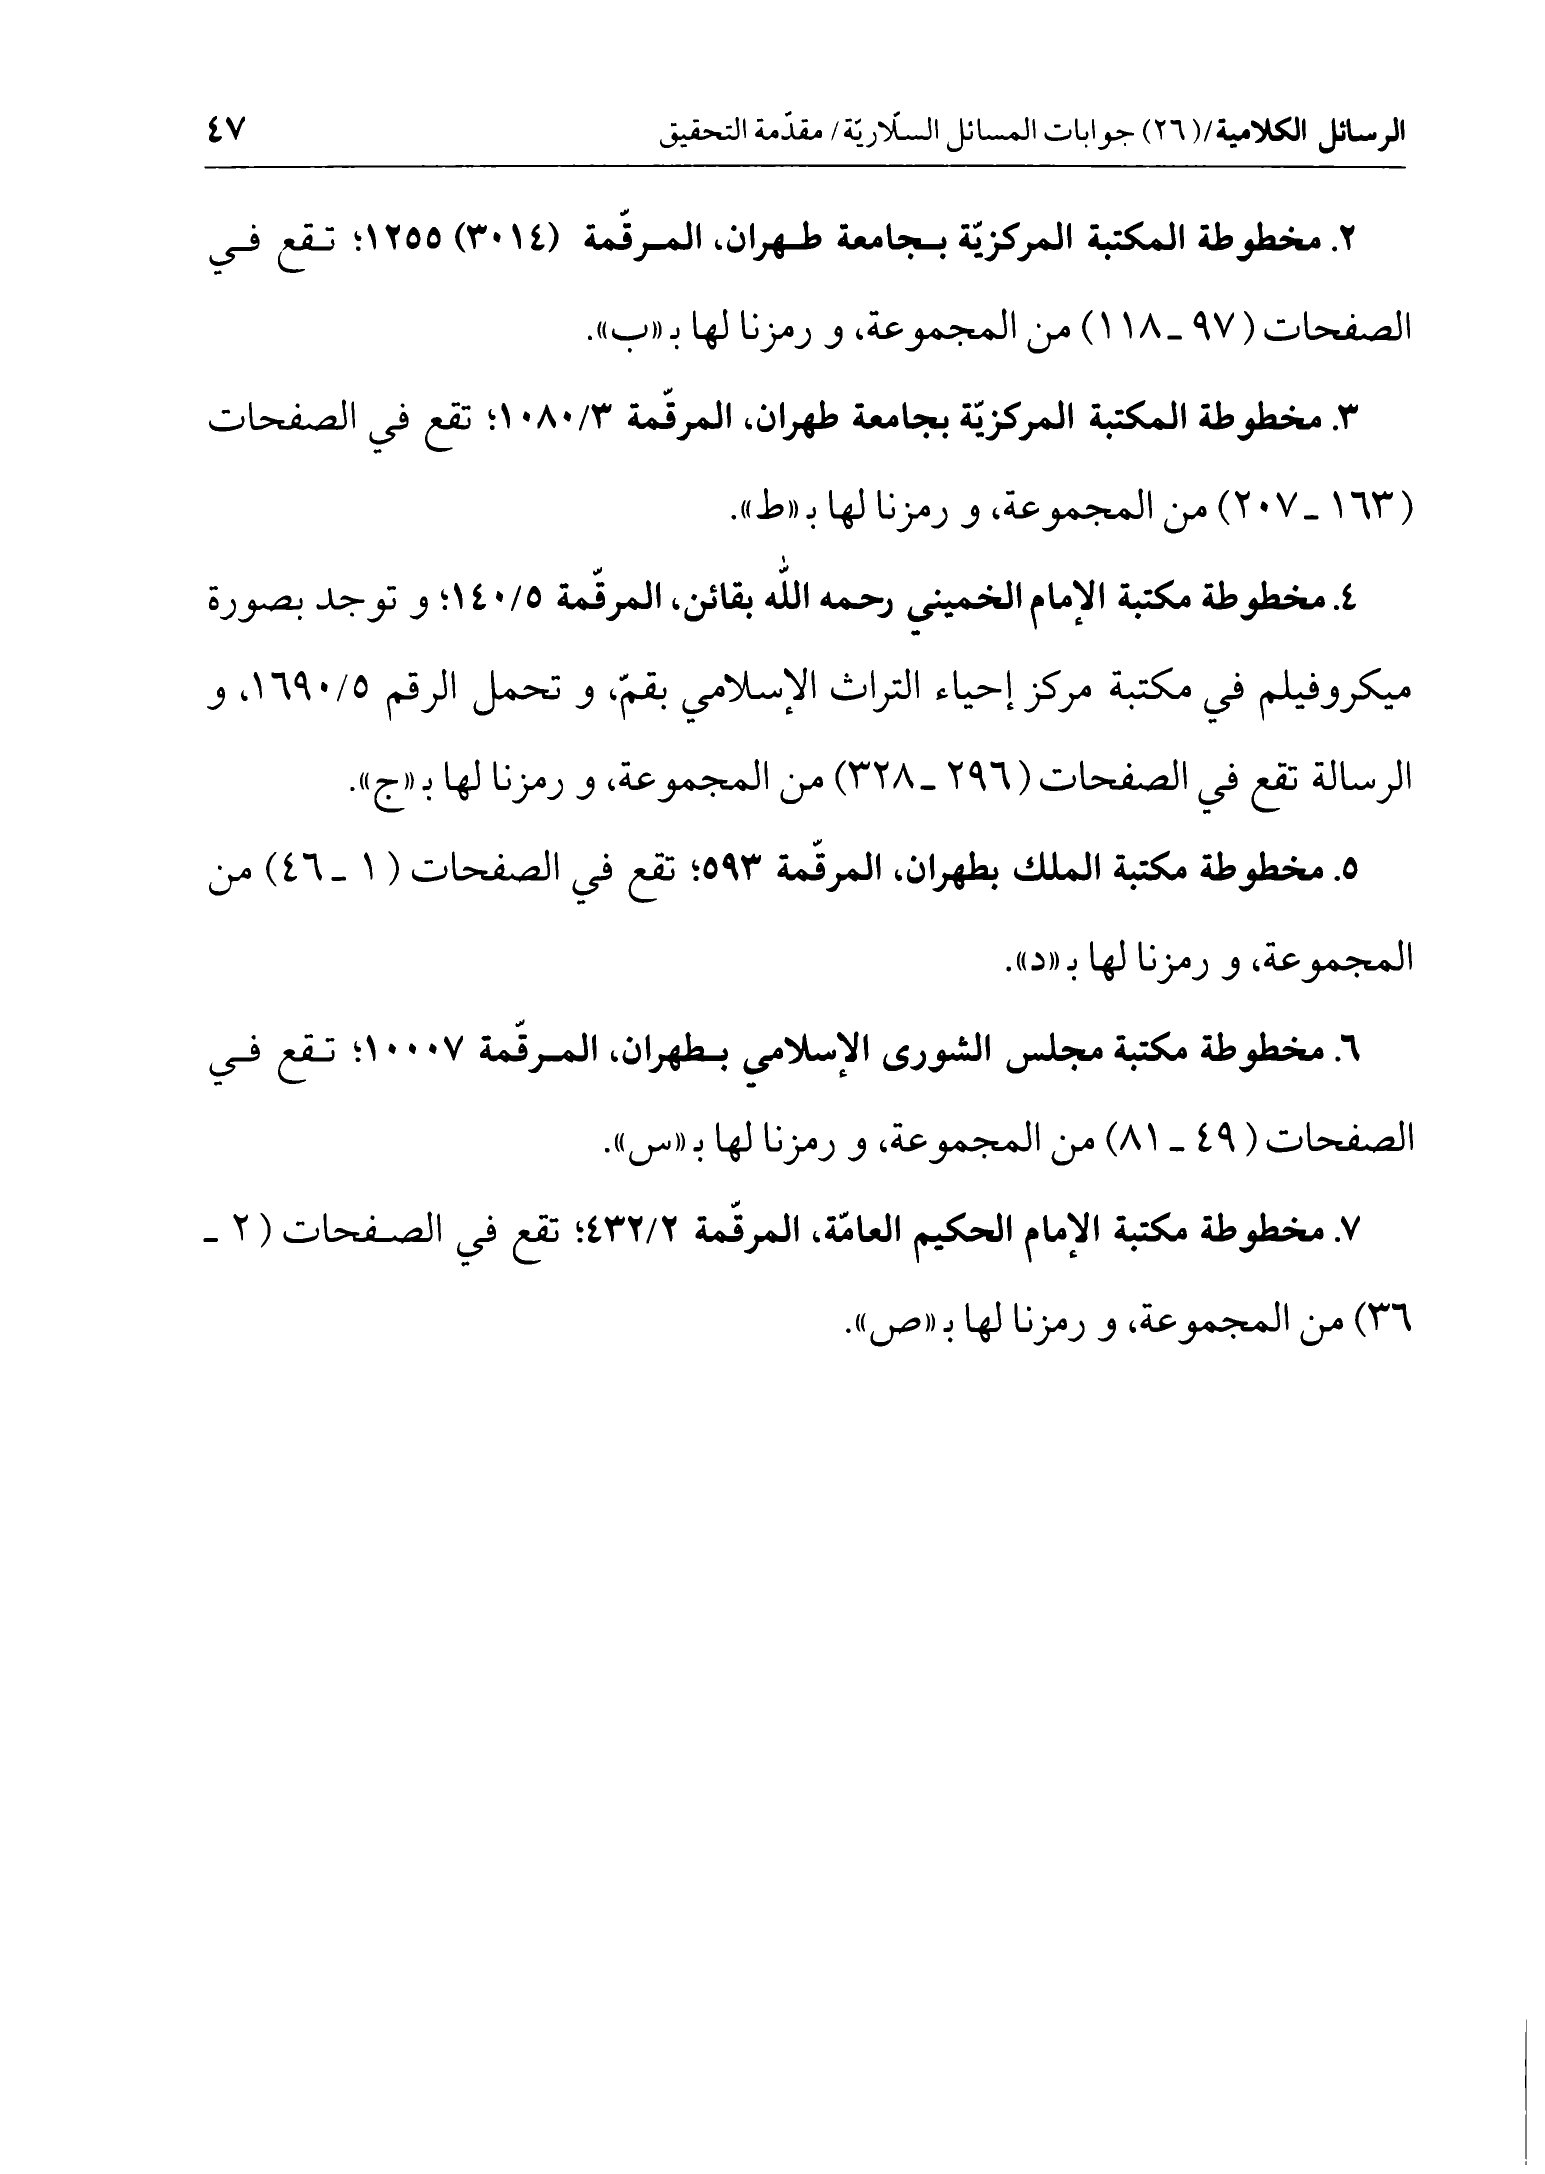 الرسائل الكلامية/(٢٦) جوابات المسائل السلّاريّة/ مقدّمة التحقيق ٤٧
٢. مخطوطة المكتبة المركزيّة بـجامعة طـهران، المـرقّمة (٣٠١٤) ١٢٥٥؛ تـقع فـي
الصفحات (٩٧ ـ ١١٨) من المجموعة، و رمزنا لها بـ «ب».
٣. مخطوطة المكتبة المركزيّة بجامعة طهران، المرقّمة ١٠٨٠/٣؛ تقع في الصفحات
(١٦٣ ـ ٢٠٧) من المجموعة، و رمزنا لها بـ «ط».
٤. مخطوطة مكتبة الإمام الخميني رحمه الله بقائن، المرقّمة ١٤٠/٥؛ و توجد بصورة
ميكروفيلم في مكتبة مركز إحياء التراث الإسلامي بقمّ، و تحمل الرقم ١٦٩٠/٥، و
الرسالة تقع في الصفحات (٢٩٦ ـ ٣٢٨) من المجموعة، و رمزنا لها بـ «ج».
٥. مخطوطة مكتبة الملك بطهران، المرقّمة ٥٩٣؛ تقع في الصفحات (١ ـ ٤٦) من
المجموعة، و رمزنا لها بـ «د».
٦. مخطوطة مكتبة مجلس الشورى الإسلامي بـطهران، المـرقّمة ١٠٠٠٧؛ تـقع فـي
الصفحات (٤٩ ـ ٨١) من المجموعة، و رمزنا لها بـ «س».
٧. مخطوطة مكتبة الإمام الحكيم العامّة، المرقّمة ٤٣٢/٢؛ تقع في الصـفحات (٢ ـ
٣٦) من المجموعة، و رمزنا لها بـ «ص».